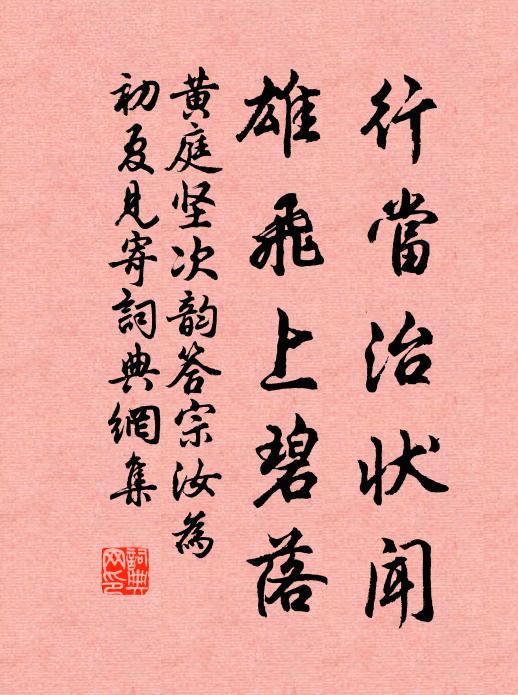 行當治狀聞
雄飛上碧落
黄庭坚次韵答宗汝為
初夏見寄詞典網集
詞典
网印